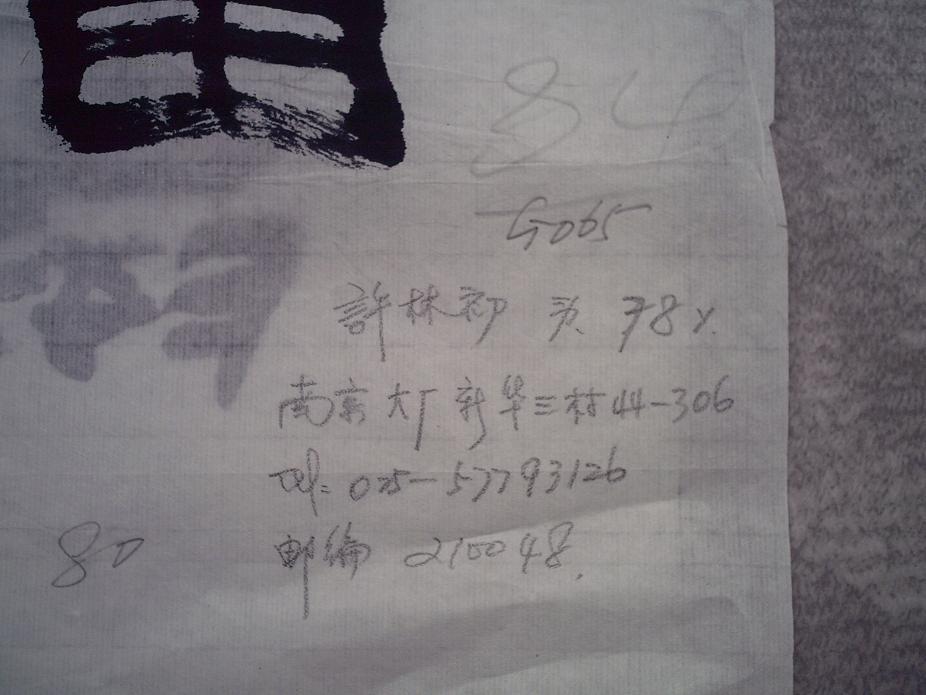 84
G065
許林初 男 78岁
南京大厂新华三村44-306
Tel: 025-57793126
80
邮编 210048.